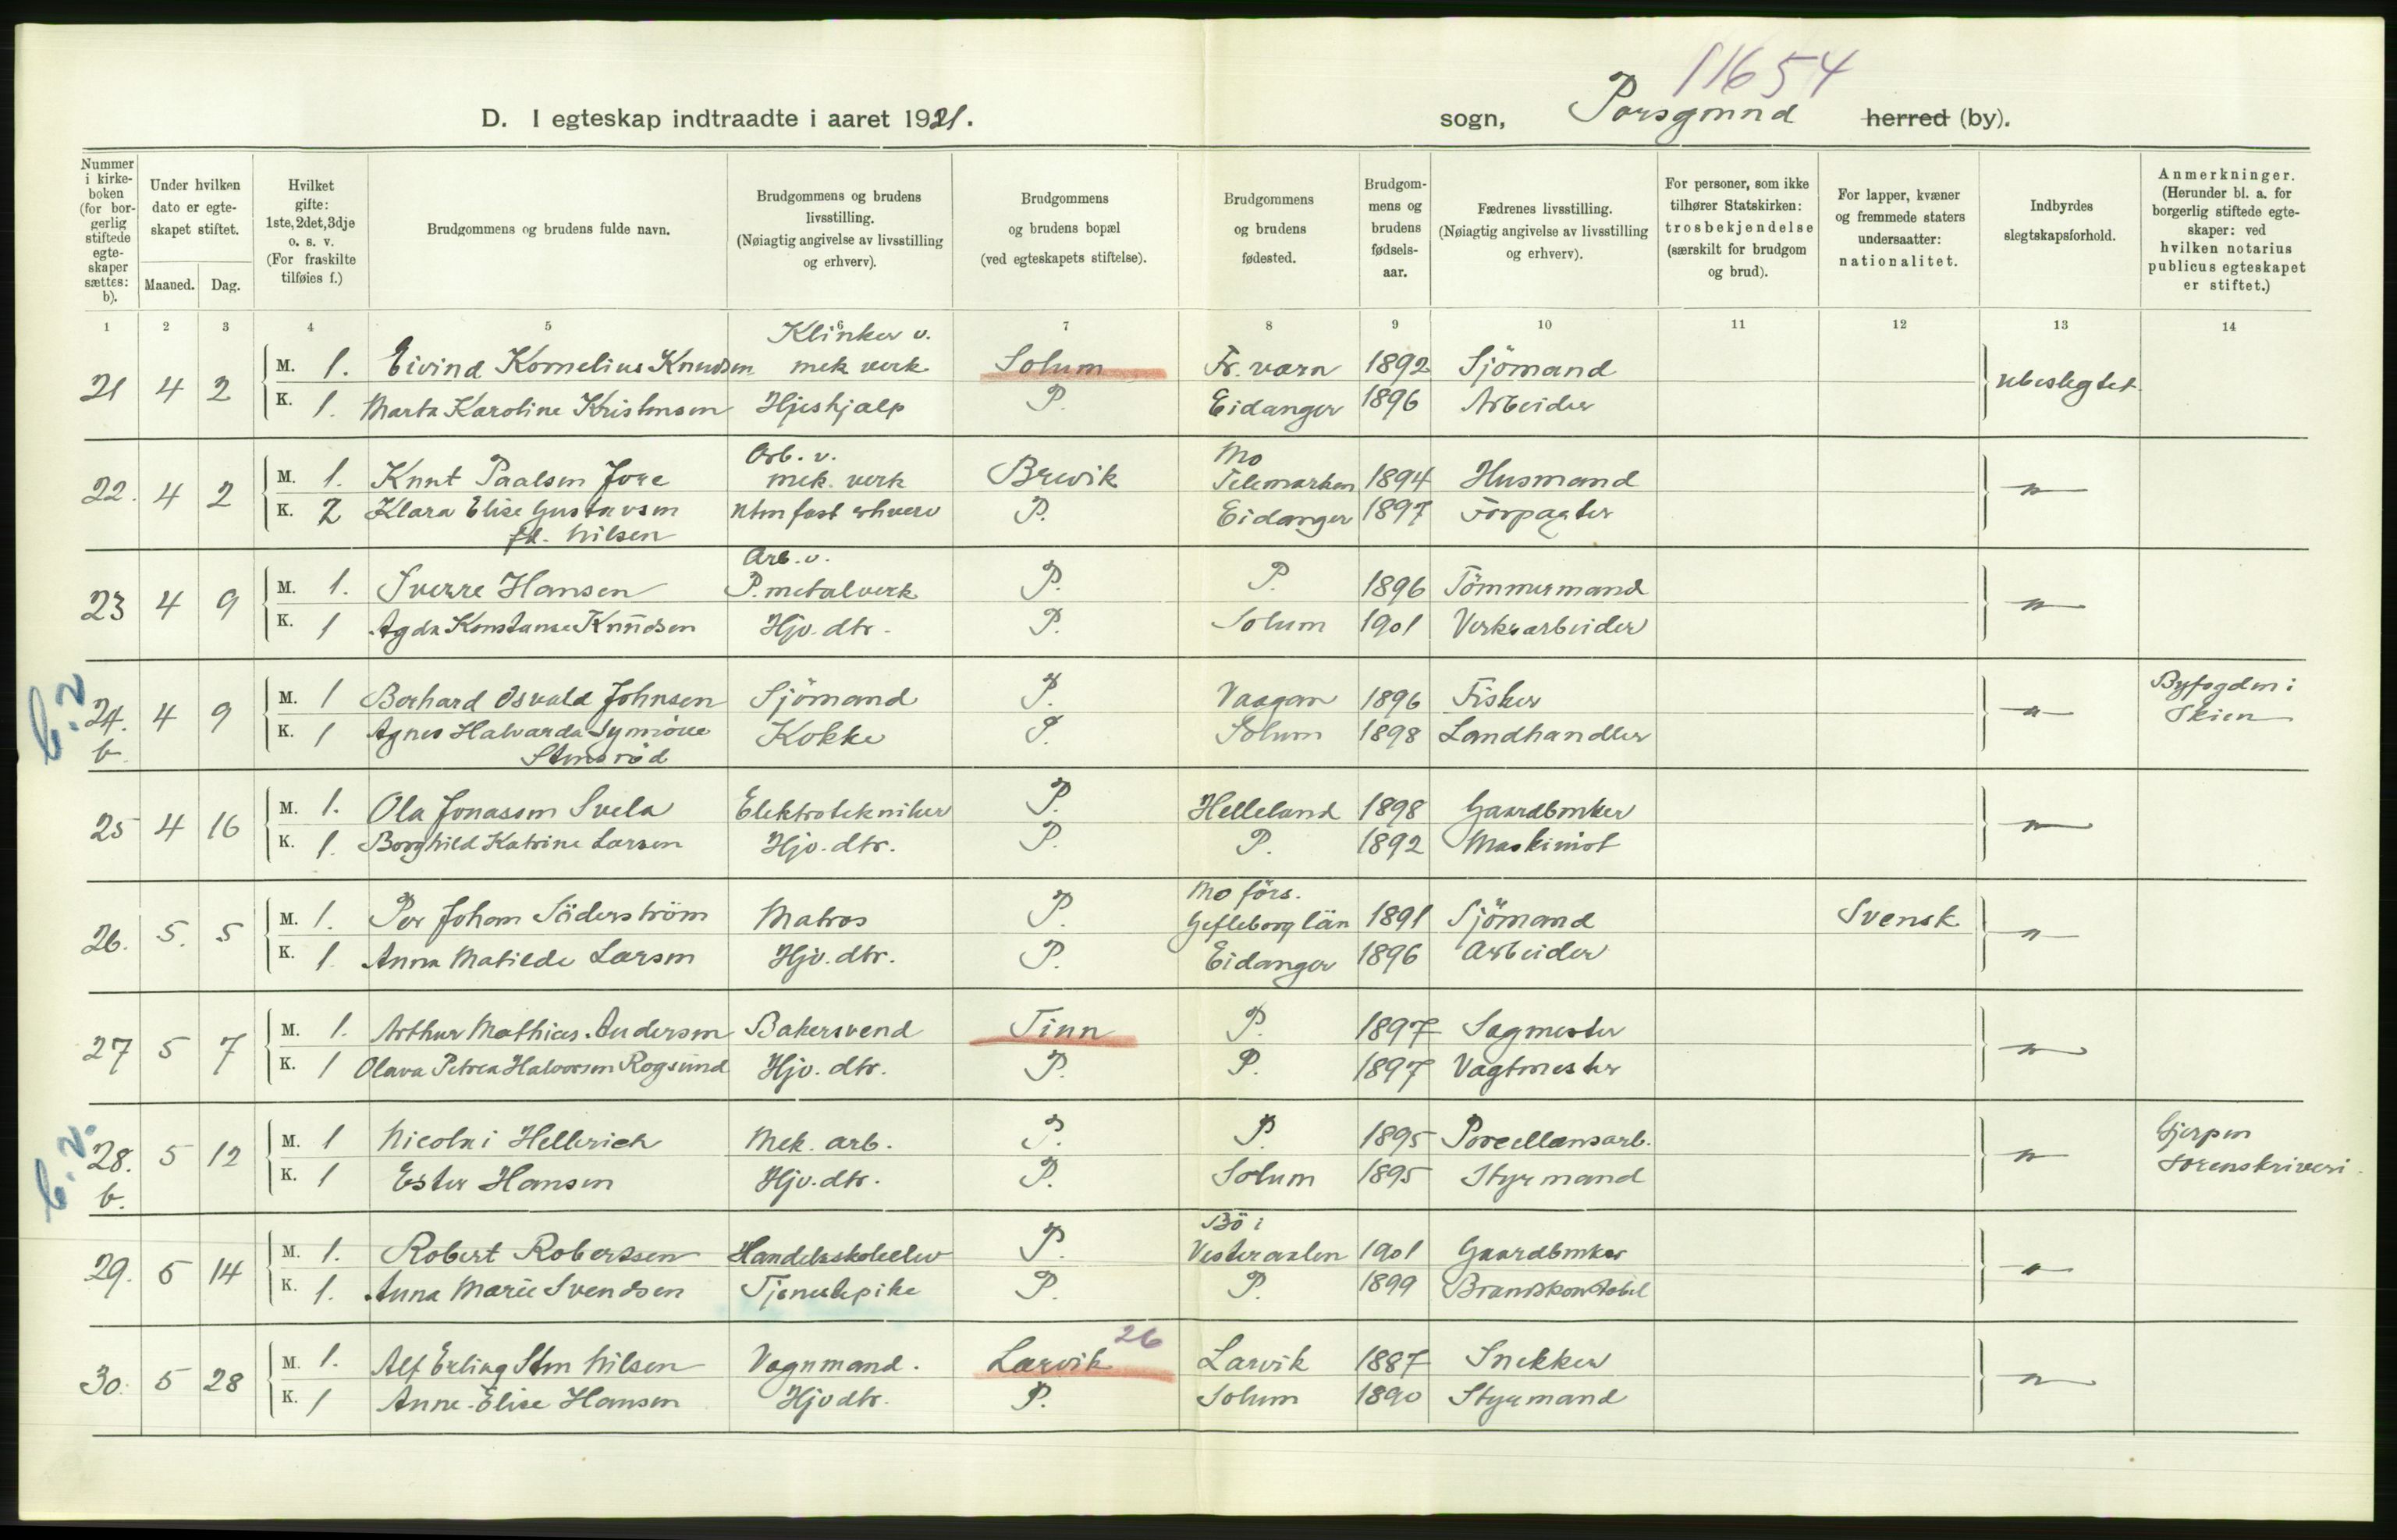 11654
D. I egteskap indtraadte i aaret 1921.
sogn, Porsgrund herred (by).
Nummer i kirke-boken (for bor-gerlig stiftede egte-skaper sættes: b).
Under hvilken dato er egte-skapet stiftet.
Maaned. Dag.
Hvilket gifte: 1ste, 2det, 3dje o. s. v. (For fraskilte tilføies f.)
Brudgommens og brudens fulde navn.
Brudgommens og brudens livsstilling. (Nøiagtig angivelse av livsstilling og erhverv).
Brudgommens og brudens bopæl (ved egteskapets stiftelse).
Brudgommens og brudens fødested.
Brudgom-mens og brudens fødsels-aar.
Fædrenes livsstilling. (Nøiagtig angivelse av livsstilling og erhverv).
For personer, som ikke tilhører Statskirken: trosbekjendelse (særskilt for brudgom og brud).
For lapper, kvæner og fremmede staters undersaatter: nationalitet.
Indbyrdes slegtskapsforhold.
Anmerkninger. (Herunder bl. a. for borgerlig stiftede egte-skaper: ved hvilken notarius publicus egteskapet er stiftet.)
1 2 3 4 5 6 7 8 9 10 11 12 13 14
Klinker v.
21 4 2 M. 1. Eivind Kornelius Knudsen mek verk Solum Fr. værn 1892 Sjömand ubeslegtet
K. 1. Marta Karoline Kristensen Hjeshjælp P. Eidanger 1896 Arbeider
Arb. v. Mo
22. 4 2 M. 1. Knut Paalsen Jore mek. verk Brevik Telemarken 1894 Husmand "
K. 2 Klara Elise Gustavsen uten fast erhverv P. Eidanger 1897 Forpagter
fd. Nilsen
Arb. v.
23 4 9 M. 1. Sverre Hansen P. metalverk P. P. 1896 Tömmermand "
K. 1 Agda Konstanse Knudsen Hjv. dtr. P. Solum 1901 Verksarbeider
b. v.
24. b. 4 9 M. 1 Berhard Osvald Johnsen Sjömand P. Vaagan 1896 Fisker " Byfogden i Skien
K. 1 Agnes Halvarda Synnöve Kokke P. Solum 1898 Landhandler
Stensröd
25 4 16 M. 1. Ola Jonassen Svela Elektrotekniker P. Helleland 1898 Gaardbruker "
K. 1. Borghild Katrine Larsen Hjv. dtr. P. P. 1892 Maskinist
Mo förs.
26. 5. 5 M. 1. Per Johan Söderström Matros P. Gefleborg län 1891 Sjömand Svensk "
K. 1. Anna Matilde Larsen Hjv. dtr. P. Eidanger 1896 Arbeider
27 5 7 M. 1. Arthur Mathias Andersen Bakersvend Tinn P. 1897 Sagmester "
K. 1 Olava Petrea Halvorsen Rogsund Hjv. dtr. P. P. 1897 Vagtmester
b. v.
28. b. 5 12 M. 1 Nicolai Hellerich Mek. arb. P. P. 1895 Porcellænsarb. " Gjerpen Sorenskriveri.
K. 1 Ester Hansen Hjv. dtr. P. Solum 1895 Styrmand
Bö i
29. 5 14 M. 1. Robert Robertsen Handelsskoleelev P. Vesteraalen 1901 Gaardbruker "
K. 1. Anna Marie Svendsen Tjenestepike P. P. 1899 Brandkonstabel
26
30. 5 28 M. 1. Alf Erling Sten Nilsen Vognmand. Larvik Larvik 1887 Snekker "
K. 1 Anne Elise Hansen Hjv dtr. P. Solum 1890 Styrmand